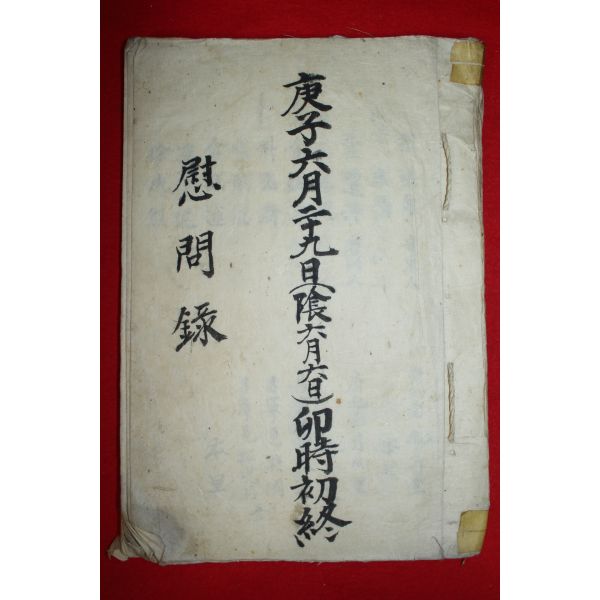 庚子六月二十九日(陰六月六日)卯時初終
慰問錄